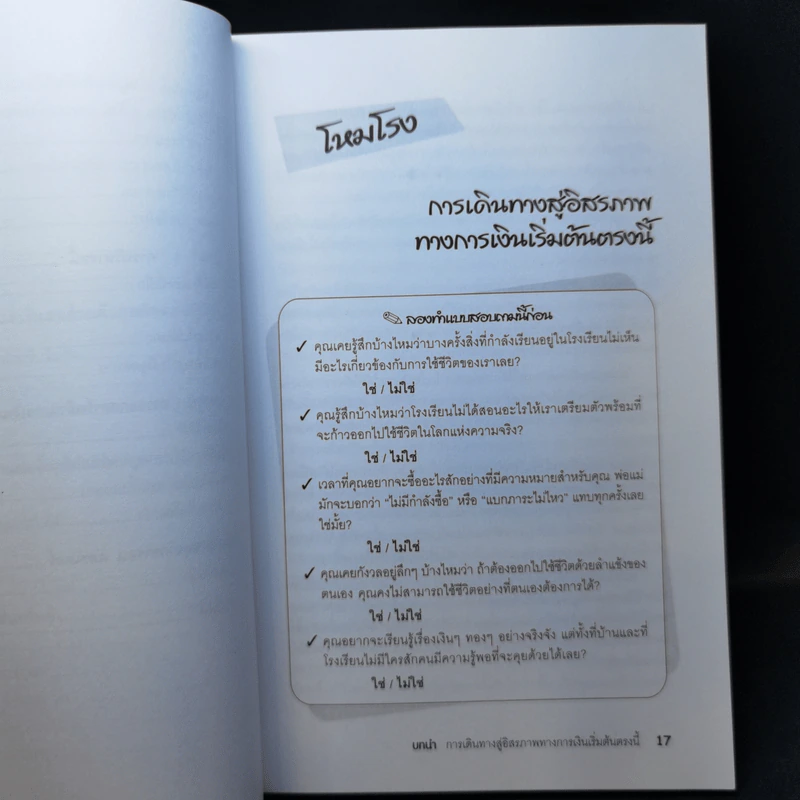 โหมโรง
การเดินทางสู่อิสรภาพ
ทางการเงินเริ่มต้นตรงนี้
ลองทำแบบสอบถามนี้ก่อน
✓ คุณเคยรู้สึกบ้างไหมว่าบางครั้งสิ่งที่กำลังเรียนอยู่ในโรงเรียนไม่เห็น
มีอะไรเกี่ยวข้องกับการใช้ชีวิตของเราเลย?
ใช่ / ไม่ใช่
✓ คุณรู้สึกบ้างไหมว่าโรงเรียนไม่ได้สอนอะไรให้เราเตรียมตัวพร้อมที่
จะก้าวออกไปใช้ชีวิตในโลกแห่งความจริง?
ใช่ / ไม่ใช่
✓ เวลาที่คุณอยากจะซื้ออะไรสักอย่างที่มีความหมายสำหรับคุณ พ่อแม่
มักจะบอกว่า “ไม่มีกำลังซื้อ” หรือ “แบกภาระไม่ไหว” แทบทุกครั้งเลย
ใช่มั้ย?
ใช่ / ไม่ใช่
✓ คุณเคยกังวลอยู่ลึกๆ บ้างไหมว่า ถ้าต้องออกไปใช้ชีวิตด้วยลำแข้งของ
ตนเอง คุณคงไม่สามารถใช้ชีวิตอย่างที่ตนเองต้องการได้?
ใช่ / ไม่ใช่
✓ คุณอยากจะเรียนรู้เรื่องเงินๆ ทองๆ อย่างจริงจัง แต่ทั้งที่บ้านและที่
โรงเรียนไม่มีใครสักคนมีความรู้พอที่จะคุยด้วยได้เลย?
ใช่ / ไม่ใช่
บทนำ การเดินทางสู่อิสรภาพทางการเงินเริ่มต้นตรงนี้ 17